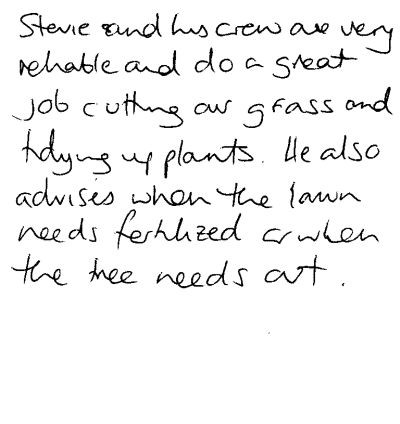 Stevie and his crew are very
reliable and do a great
job cutting our grass and
tidying up plants. He also
advises when the lawn
needs fertilized or when
the tree needs cut.